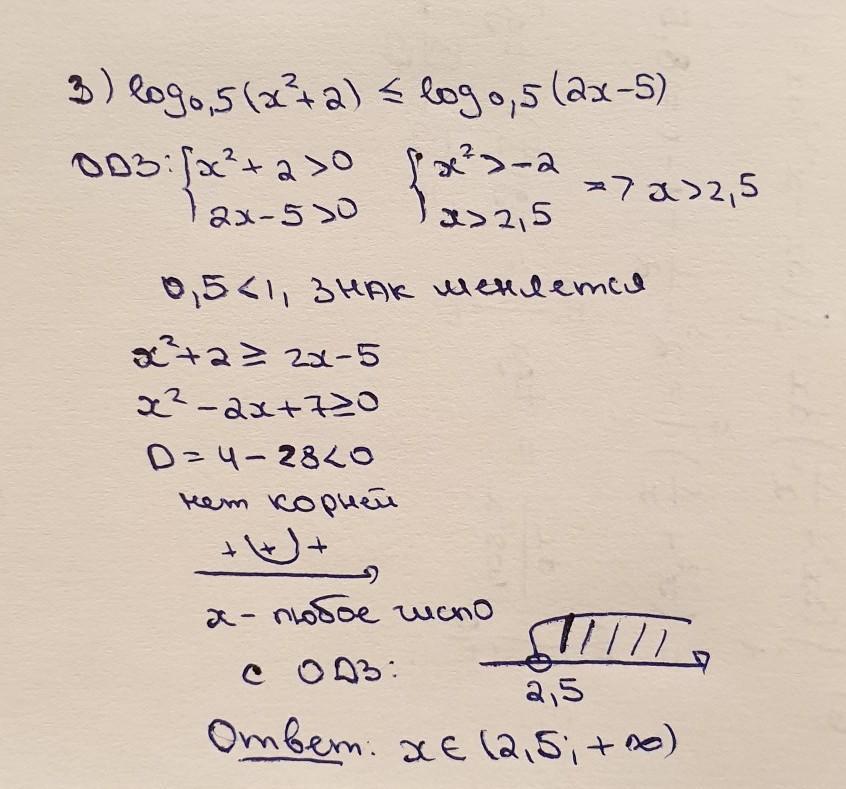 3) log₀,₅(x²+2) ≤ log₀,₅(2x-5)
ОДЗ: { x²+2>0 { x²>-2 => x>2,5
2x-5>0 x>2,5
0,5<1, знак меняется
x²+2 ≥ 2x-5
x²-2x+7≥0
D = 4-28<0
нет корней
+ (+) +
x - любое число
с ОДЗ:
2,5
Ответ: x ∈ (2,5; +∞)